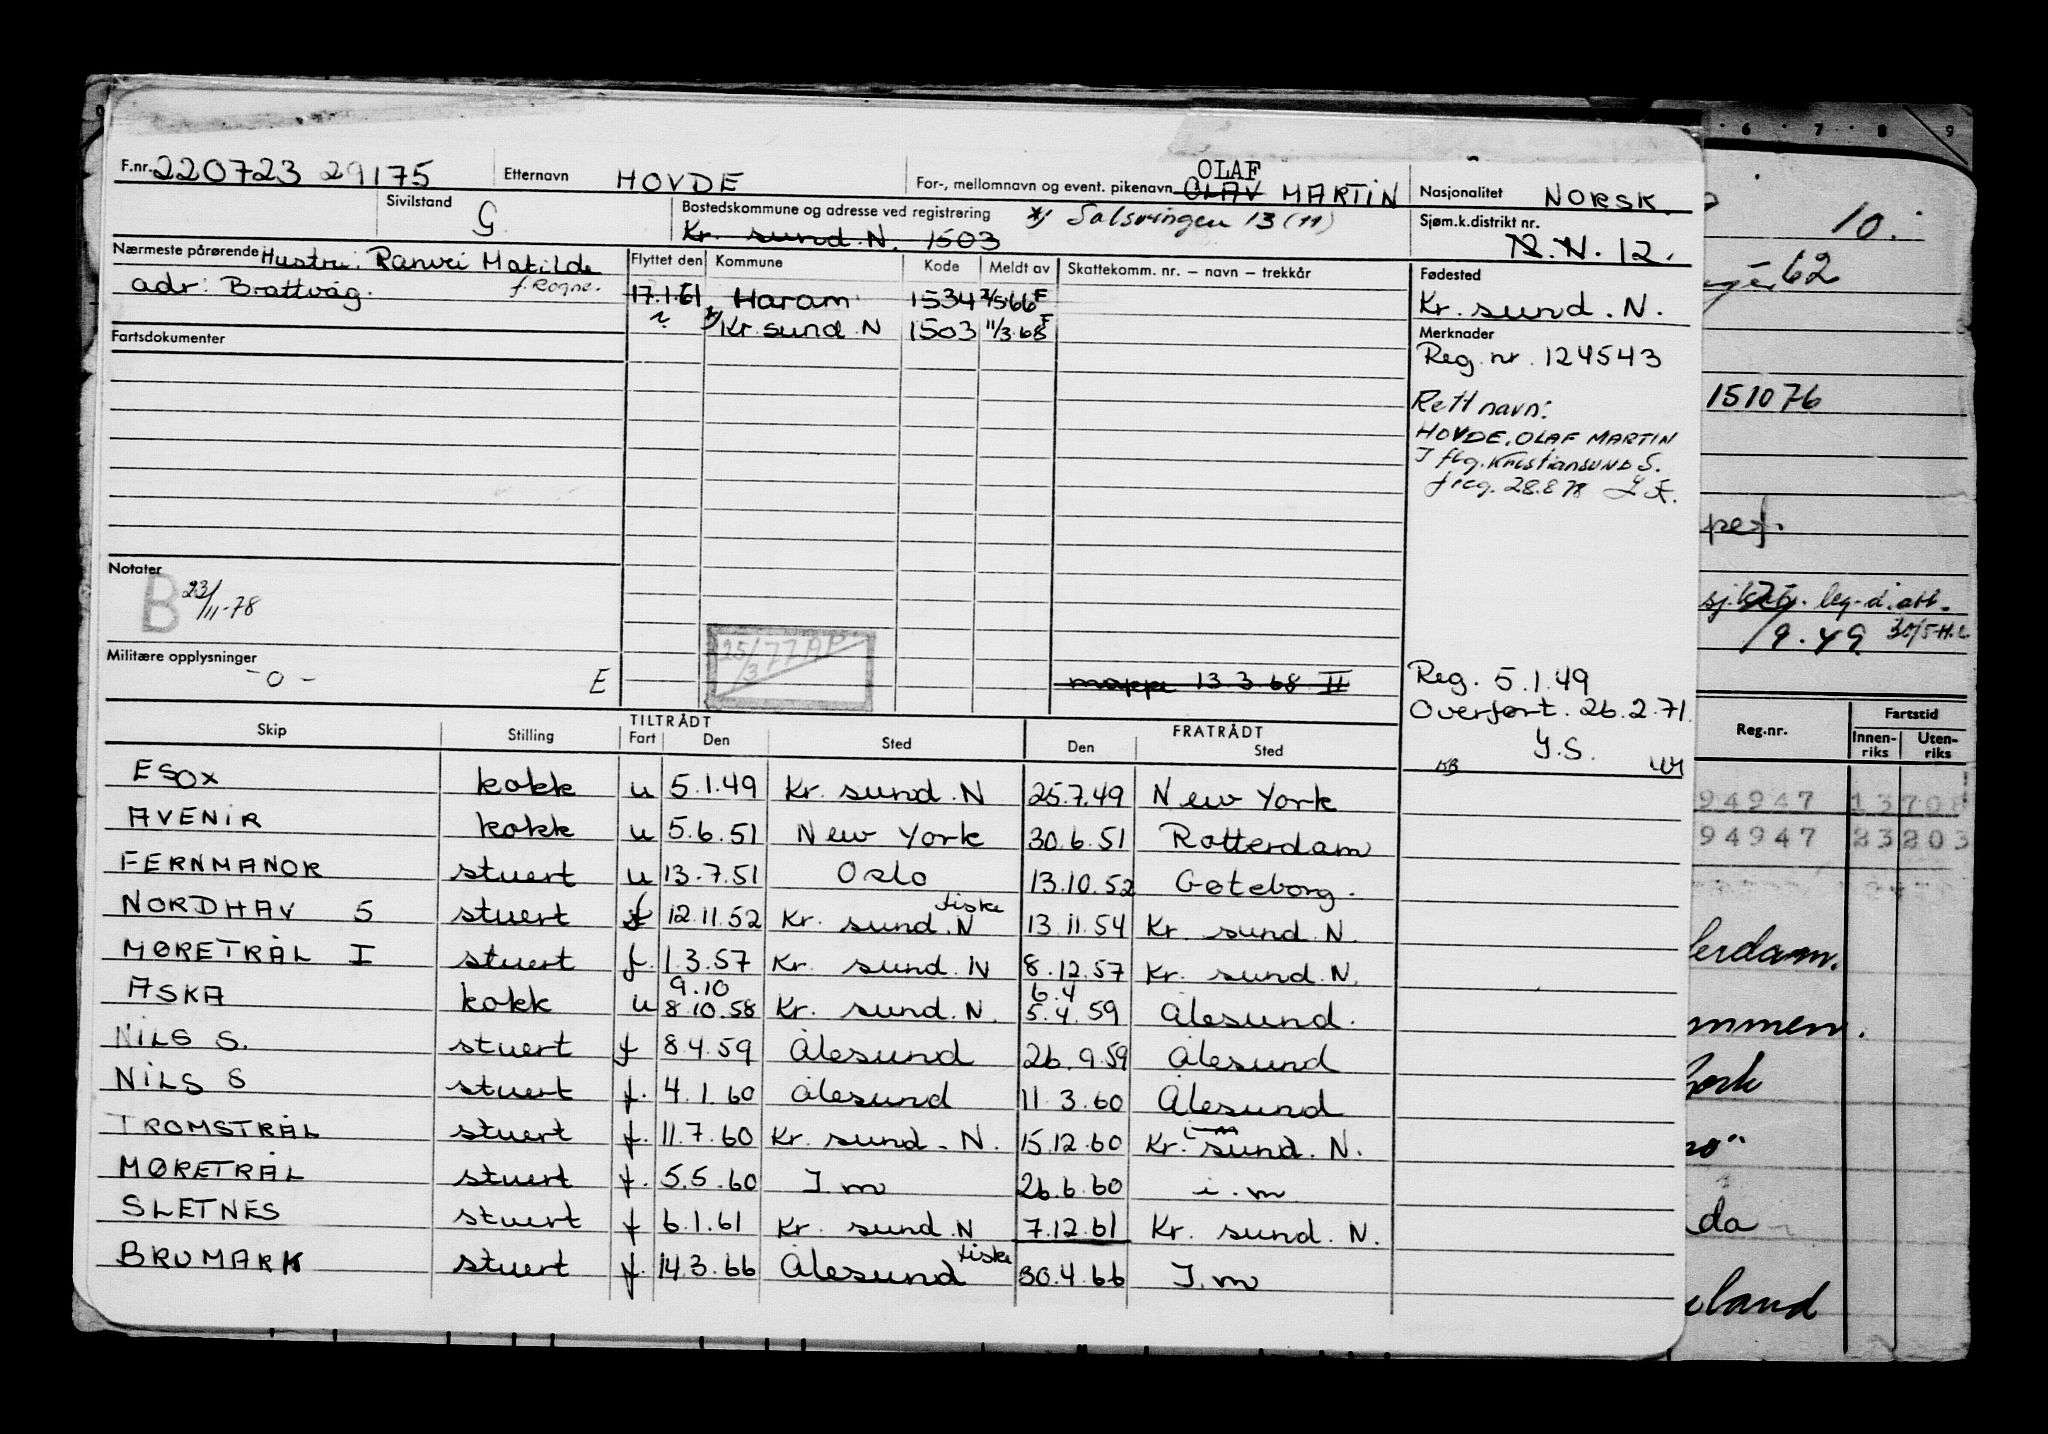 F.nr. 220723 29175 Etternavn HOVDE For-, mellomnavn og event. pikenavn OLAF OLAV MARTIN Nasjonalitet NORSK.
Sivilstand G. Bostedskommune og adresse ved registrering *) Salsvingen 13 (11) Sjøm.k.distrikt nr.
Kr. sund. N. 1503 N. 12.
Nærmeste pårørende Hustru: Ranvei Matilde f. Rogne.
adr: Brattvåg.
Flyttet den Kommune Kode Meldt av Skattekomm. nr. – navn – trekkår Fødested
17.1.61 Haram 1534 2/5.66 F Kr. sund. N.
*) Kr. sund. N 1503 11/3.68 F
Fartsdokumenter
Merknader
Reg. nr. 124543
Rett navn:
HOVDE, OLAF MARTIN
I flg. Kristiansund S.
freg. 28.8 78
Notater
B 23/11-78
25/3 77
Militære opplysninger
- o - E
mappe 13.3.68 II
Reg. 5.1.49
Overført. 26.2.71.
Y.S.
KB
Skip Stilling TILTRÅDT Fart Den Sted FRATRÅDT Den Sted
ESOX kokk u 5.1.49 Kr. sund. N 25.7.49 New York
AVENIR kokk u 5.6.51 New York 30.6.51 Rotterdam
FERNMANOR stuert u 13.7.51 Oslo 13.10.52 Gøteborg.
NORDHAV 5 stuert f 12.11.52 Kr. sund. N fiske 13.11.54 Kr. sund. N.
MØRETRÅL I stuert f. 1.3.57 Kr. sund. N 8.12.57 Kr. sund. N.
ASKA kokk u 9.10 8.10.58 Kr. sund. N. 6.4 5.4.59 Ålesund.
NILS S. stuert f 8.4.59 Ålesund 26.9.59 Ålesund
NILS S stuert f. 4.1.60 Ålesund 11.3.60 Ålesund
TROMSTRÅL stuert f. 11.7.60 Kr. sund. N. 15.12.60 Kr. sund. N.
MØRETRÅL stuert f. 5.5.60 I.m 26.6.60 i.m
SLETNES stuert f 6.1.61 Kr. sund. N 7.12.61 Kr. sund. N.
BRUMARK stuert f. 14.3.66 Ålesund fiske 30.4.66 I.m
6 7 8 9
10.
62
151076
leg-d. att.
9.49
Reg.nr. Fartstid
Innen-riks Uten-riks
94947 13708
94947 23203
lerdam.
mmen.
da
land